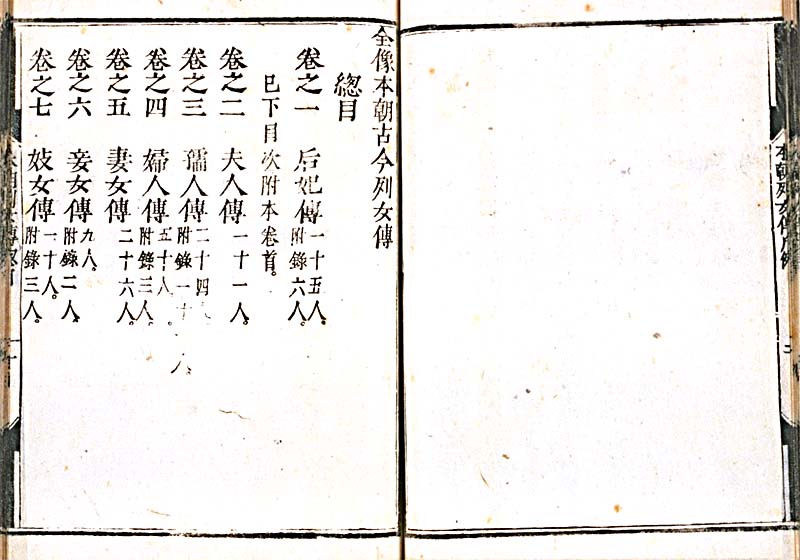 全像本朝古今列女傳
總目
卷之一 后妃傳 一十五人。附錄六人。
已下目次附本卷首。
卷之二 夫人傳 一十一人。
卷之三 孺人傳 二十四人 附錄一十 人。
卷之四 婦人傳 五十八 。附錄三人。
卷之五 妻女傳 二十六人。
卷之六 妾女傳 九人。附錄二人。
卷之七 妓女傳 一十人。附錄三人。
本朝列女傳